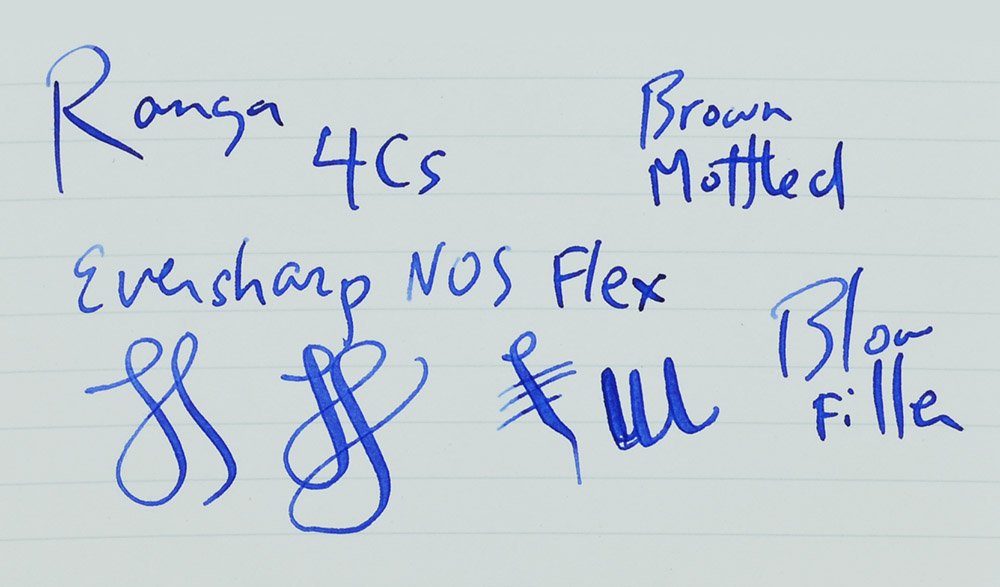 Ranga
4Cs
Brown
Mottled
Eversharp NOS Flex
Blow
Filler